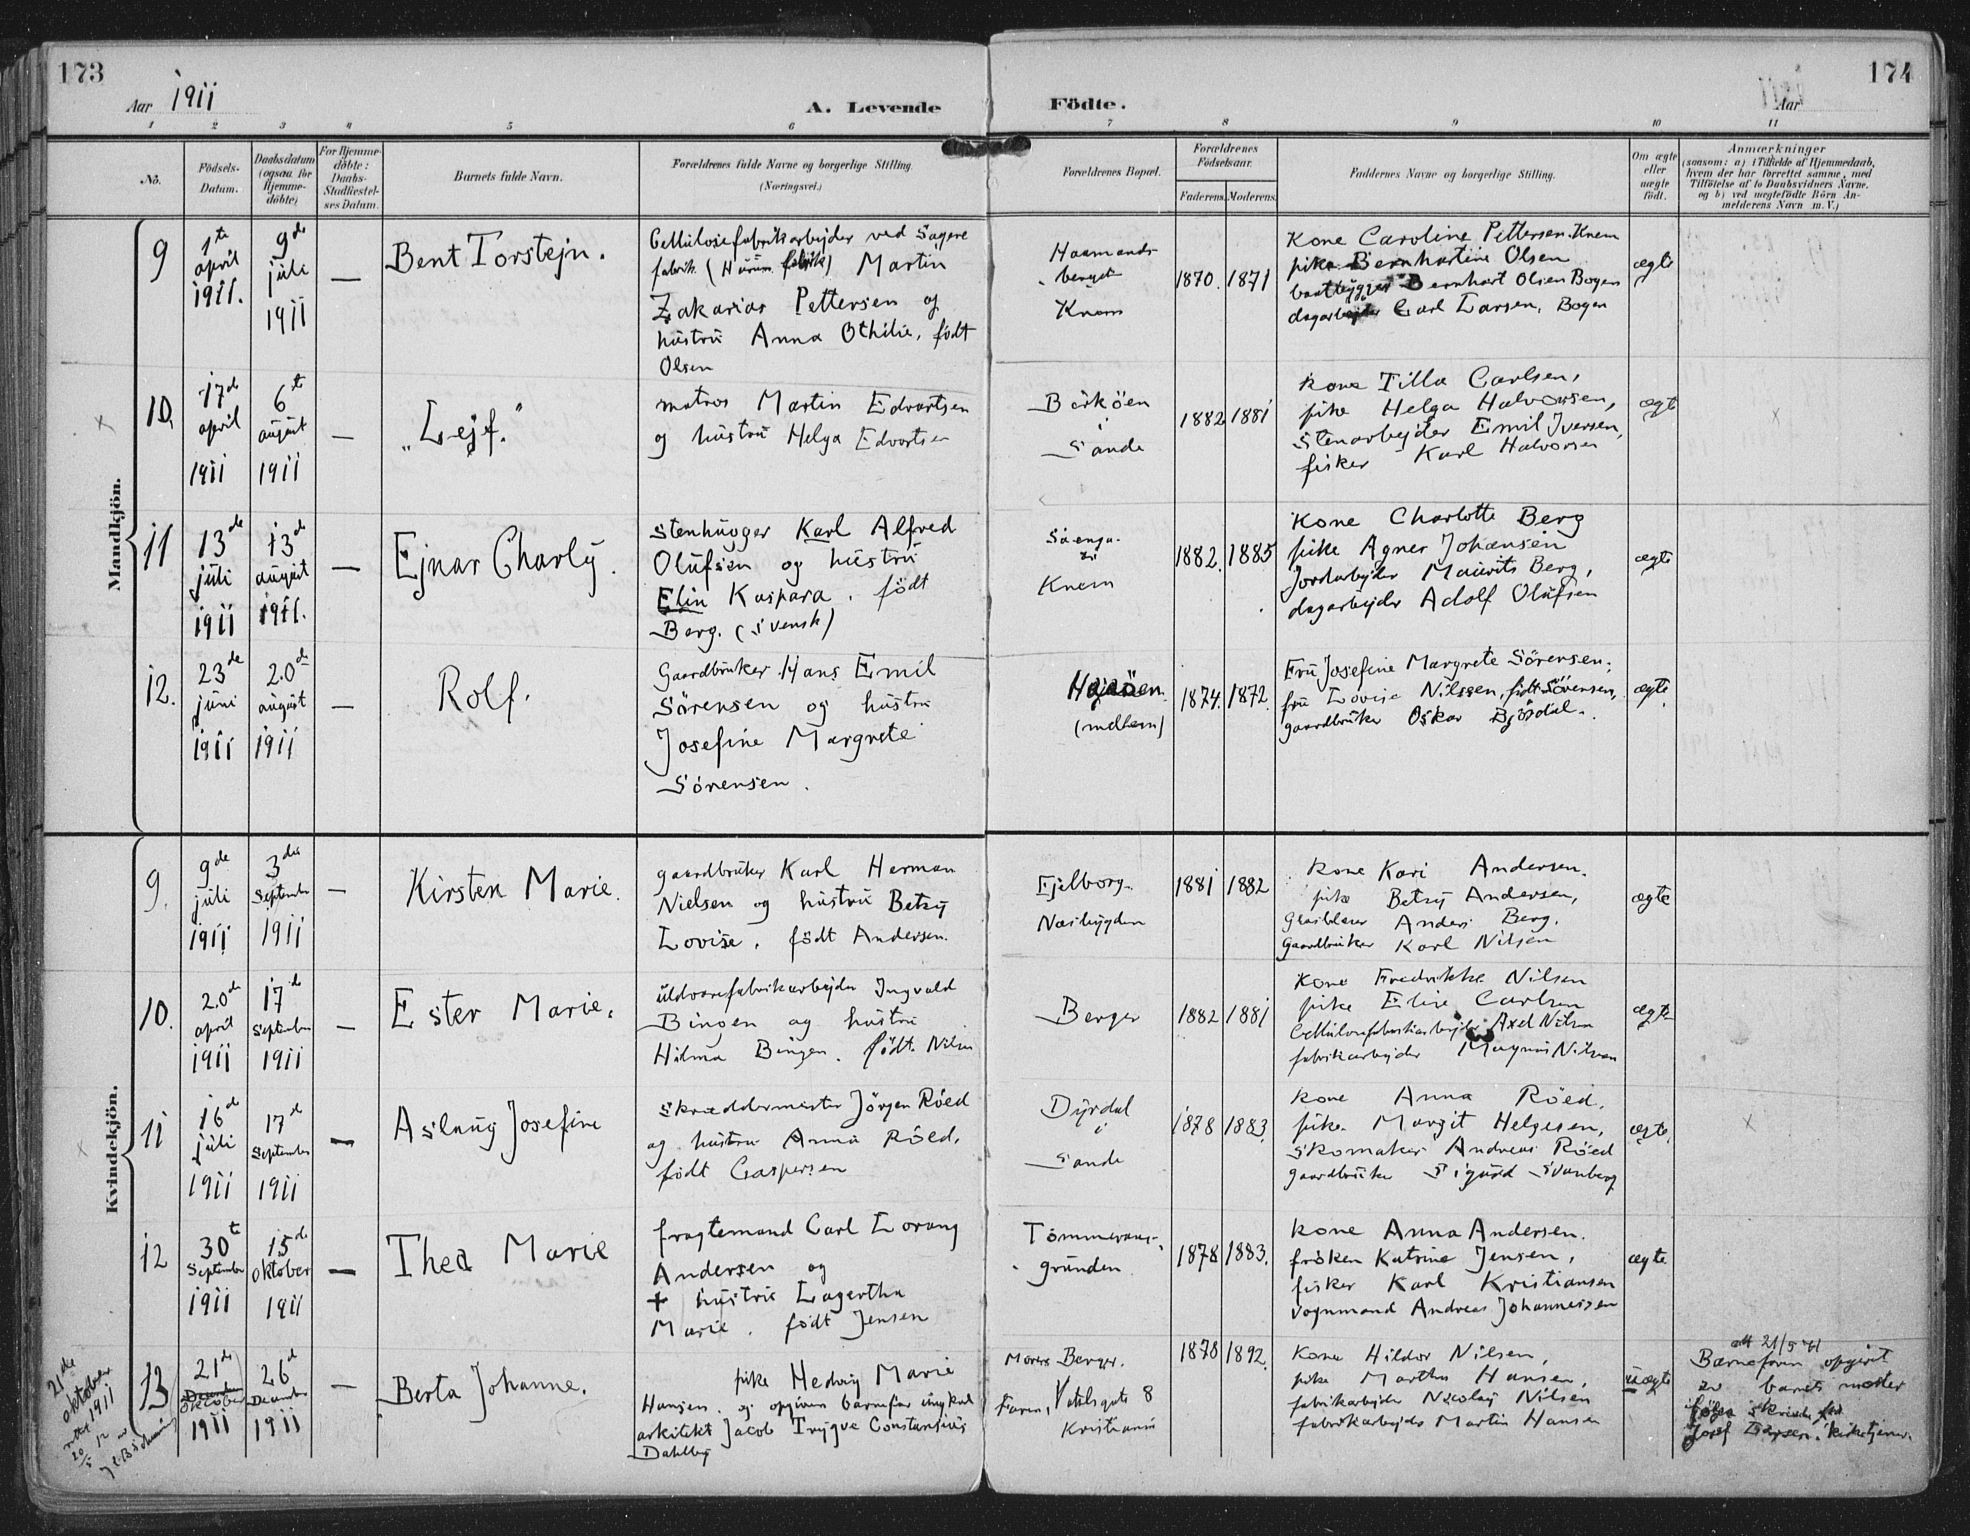 173
Aar 1911
A. Levende
Födte.
Aar
174
1 2 3 4 5 6 7 8 9 10 11
No.
Födsels-
Datum.
Daabsdatum
(ogsaa for
Hjemme-
döbte)
For Hjemme-
döbte:
Daabs-
Stadfæstel-
ses Datum.
Barnets fulde Navn.
Forældrenes fulde Navne og borgerlige Stilling.
(Næringsvei.)
Forældrenes Bopæl.
Forældrenes
Födselsaar.
Faderens.
Moderens.
Faddernes Navne og borgerlige Stilling.
Om ægte
eller
uægte
født.
Anmærkninger
(saasom: a) i Tilfælde af Hjemmedaab,
hvem der har forrettet samme, med
Tilföielse af to Daabsvidners Navne.
og b) ved uægtefödte Börn An-
melderens Navn m. V.)
Mandkjön.
9
1te
april
1911.
9de
juli
1911
—
Bent Torstejn.
Cellulosefabrikarbejder ved Sagene
fabrik (Hurum fabrik) Martin
Zakarias Pettersen og
hustru Anna Othilie, født
Olsen
Haamands-
berget
Knem
1870.
1871
Kone Caroline Pettersen. Knem
pike Bernhartine Olsen
baatbygger Bernhart Olsen Bogen
dagarbejder Carl Larsen, Bogen
ægte
10.
17de
april
1911
6te
august
1911
—
"Lejf."
matros Martin Edvartsen
og hustru Helga Edvartsen
Birköen
i
Sande
1882
1881
Kone Tilla Carlsen,
pike Helga Halvorsen,
Stenarbejder Emil Iversen,
fisker Karl Halvorsen
ægt
x
11
13de
juli
1911
13de
august
1911.
—
Ejnar Charly.
Stenhugger Karl Alfred
Olufsen og hustru
Elin Kaspara. født
Berg. (svensk)
Knem
1882.
1885
Kone Charlotte Berg
pike Agnes Johansen
Jordarbejder Maurits Berg,
dagarbejder Adolf Olufsen
ægte
12.
23de
juni
1911
20de
august
1911
—
Rolf.
Gaardbruker Hans Emil
Sörensen og hustru
Josefine Margrete
Sörensen.
Højaöen
(mellem)
1874.
1872.
Fru Josefine Margrete Sörensen.
fru Lovise Nilssen, født Sörensen,
gaardbruker Oskar Bjödal.
ægte.
Kvindekjön.
9.
9de
juli
1911
3die
September
1911
—
Kirsten Marie.
gaardbruker Karl Herman
Nielsen og hustru Betzy
Lovise, født Andersen.
Ejelborg.
Næsbygden
1881
1882
Kone Kari Andersen.
pike Betzy Andersen,
Glasblæser Anders Berg.
Gaardbruker Karl Nilsen
ægte
10.
20de
april
1911
17de
September
1911
—
Ester Marie.
uldvarefabrikarbejder Ingvald
Bingen og hustru
Hilma Bingen. født. Nilsen
Berger
1882
1881
Kone Fredrikke Nilsen
pike Elise Carlsen
Cellulosefabrikarbejder Axel Nilsen
fabrikarbejder Magnus Nilsen
ægte
11
16de
juli
1911
17de
September
1911
—
Aslaug Josefine
Skræddermester Jörgen Röed
og hustru Anna Röed,
født Caspersen
Dyrdal
i
Sande
1878
1883.
Kone Anna Röed.
pike. Margit Helgesen,
Skomaker Andreas Röed
gaardbruker Sigurd Svanberg
ægte.
x
12
30te
September
1911
15de
oktober
1911
—
Thea Marie
fragtemand Carl Lorang
Andersen og
+ hustru Lagertha
Marie. født Jensen
Tömmeraas-
grunden
1878
1883.
Kone Anna Andersen.
fröken Katrine Jensen,
fisker Karl Kristiansen
vognmand Andreas Johannessen
ægte
21de
oktober
1911
13
21de
oktober
1911
26de
December
1911
—
Berta Johanne.
pike Hedvig Marie
Hansen. og opgiven barnefar ungkarl
arkitekt Jacob Trygve Constansius
Dahlby
Morens Berger.
Faren, Vahlsgate 8
Kristiania
1878
1892.
Kone Hildur Nilsen,
pike Martha Hansen,
fabrikarbejder Nicolaj Nilsen
fabrikarbejder Martin Hansen
uægte
Barnefaren opgivet
av barnets moder
ifølge
Josef Larsen. kirketjener.